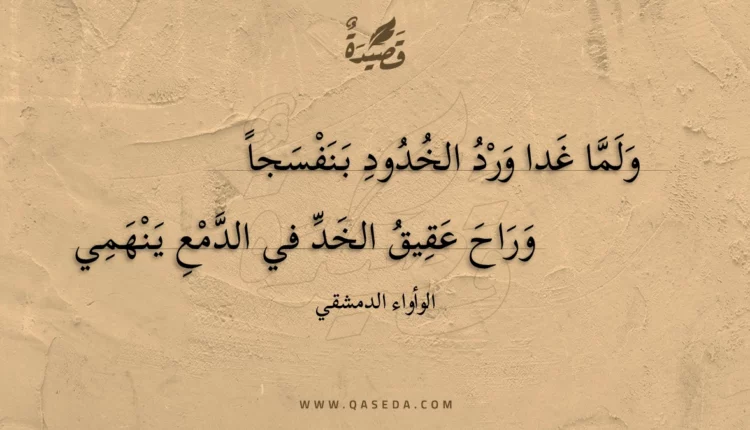 قَصِيدَةٌ
وَلَمَّا غَدا وَرْدُ الخُدُودِ بَنَفْسَجاً
وَرَاحَ عَقِيقُ الخَدِّ في الدَّمْعِ يَنْهَمِي
الوأواء الدمشقي
WWW.QASEDA.COM